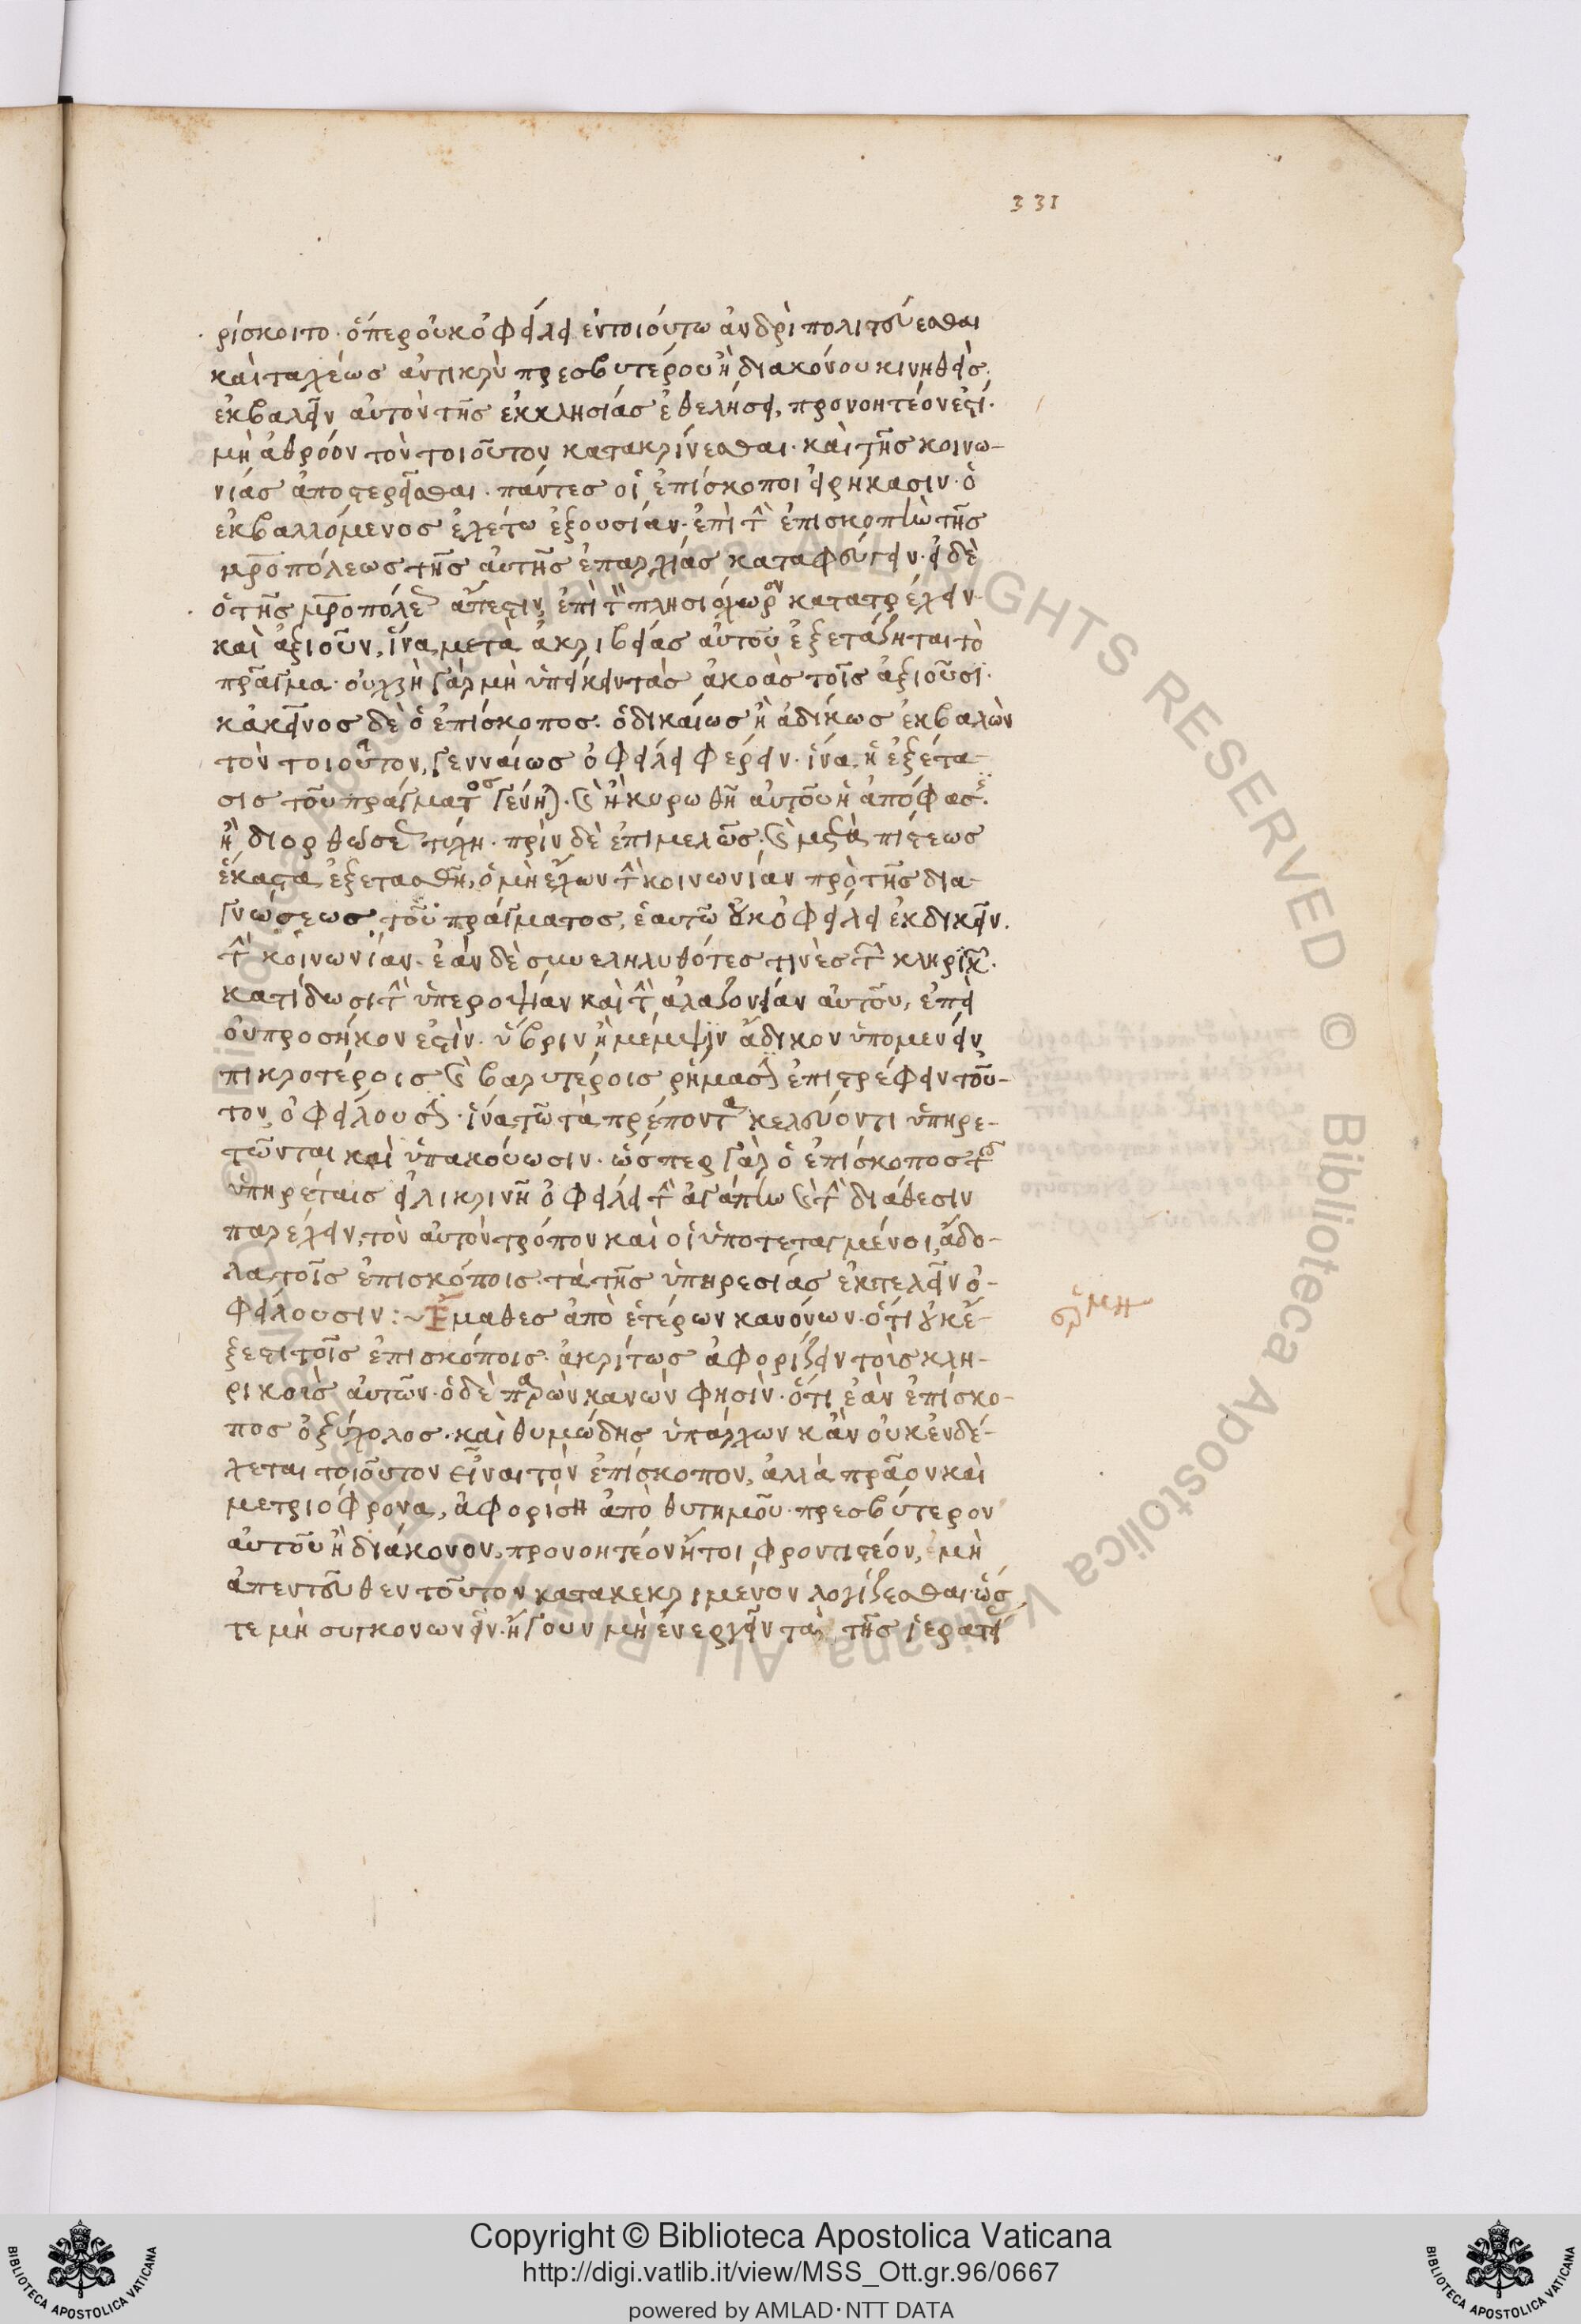 331
ρίσκοιτο· ὅπερ οὐκ ὀφείλει ἐν τοιούτω ἀνδρὶ πολιτεύεσθαι
καὶ ταχέως ἀντικρὺ πρεσβυτέρου ἢ διακόνου κινηθεὶς·
ἐκβαλεῖν αὐτὸν τῆς ἐκκλησίας ἐθελήσει, προνοητέον ἐστί·
μὴ ἀθρόον τὸν τοιοῦτον κατακρίνεσθαι· καὶ τῆς κοινω-
νίας ἀποστερεῖσθαι· πάντες οἱ ἐπίσκοποι εἰρήκασιν· ὁ
ἐκβαλλόμενος ἐχέτω ἐξουσίαν· ἐπὶ τ̂ ἐπισκοπὴν τῆς
μρ̅οπόλεως τῆς αὐτῆς ἐπαρχίας καταφεύγειν· εἰ δὲ
ὁ τῆς μρ̅οπόλε ἄπεστιν, ἐπὶ τ̂ πλησιόχωρον κατατρέχειν
καὶ ἀξιοῦν, ἵνα μετὰ ἀκριβείας αὐτοῦ ἐξετάζηται τὸ
πρᾶγμα· οὐ χρὴ γὰρ μὴ ὑπέχειν τὰς ἀκοὰς τοῖς ἀξιοῦσι·
κἀκεῖνος δὲ ὁ ἐπίσκοπος· ὁ δικαίως ἢ ἀδίκως ἐκβαλὼν
τὸν τοιοῦτον, γενναίως ὀφείλει φέρειν· ἵνα ἡ ἐξέτα-
σις τοῦ πράγματος γένη)· ϗ̀ ἢ κυρωθῆ αὐτοῦ ἡ ἀπόφασ·
ἢ διορθώσε τύχη· πρὶν δὲ ἐπιμελῶς· ϗ̀ μετὰ πίστεως
ἕκαστα ἐξετασθῆ, ὁ μὴ ἔχων τ̂ κοινωνίαν πρὸ τῆς δια-
γνώσεως τοῦ πράγματος, ἑαυτῶ οὐκ ὀφείλει ἐκδικεῖν.
τ̂ κοινωνίαν· ἐὰν δὲ συνεληλυθότες τινὲς τ̂ κληρικ·
κατίδωσι τ̂ ὑπεροψίαν καὶ τ̂ ἀλαζονείαν αὐτοῦ, ἐπεὶ
οὐ προσήκον ἐστὶν· ὕβριν ἢ μέμψιν ἄδικον ὑπομένειν
πικροτέροις ϗ̀ βαρυτέροις ῥήμασι ἐπιστρέφειν τοῦ-
τον ὀφείλουσι· ἵνα τῶ τὰ πρέποντα κελεύοντι ὑπηρε-
τῶνται καὶ ὑπακούωσιν· ὥσπερ γὰρ ὁ ἐπίσκοπος τοῖς
ὑπηρέταις εἰλικρινῆ ὀφείλει τ̂ ἀγάπην ϗ̀ τ̂ διάθεσιν
παρέχειν, τὸν αὐτὸν τρόπον καὶ οἱ ὑποτεταγμένοι, ἄδο-
λα τοῖς ἐπισκόποις τὰ τῆς ὑπηρεσίας ἐκτελεῖν ὀ-
φείλουσιν:~ Ἔμαθες ἀπὸ ἑτέρων κανόνων· ὅτι οὐκ ἔ-
ξεστι τοῖς ἐπισκόποις· ἀκρίτως ἀφορίζειν τοὺς κλη-
ρικοὺς αὐτῶν· ὁ δὲ παρὼν κανὼν φησὶν· ὅτι ἐὰν ἐπίσκο-
πος ὀξύχολος· καὶ θυμώδης ὑπάρχων κἂν οὐκ ἐνδέ-
χεται τοιοῦτον εἶναι τὸν ἐπίσκοπον, ἀλλὰ πρᾶον καὶ
μετριόφρονα, ἀφορίση ἀπὸ θυτημοῦ πρεσβύτερον
αὐτοῦ ἢ διάκονον, προνοητέον ἤτοι φροντιστέον, μὴ
ἀπεντεῦθεν τοῦτον κατακεκριμένον λογίζεσθαι· ὥσ
τε μὴ συγκονωνεῖν· ἤγουν μὴ ἐνεργεῖν τὰ τῆς ἱερατι
Copyright © Biblioteca Apostolica Vaticana
http://digi.vatlib.it/view/MSS_Ott.gr.96/0667
powered by AMLAD·NTT DATA